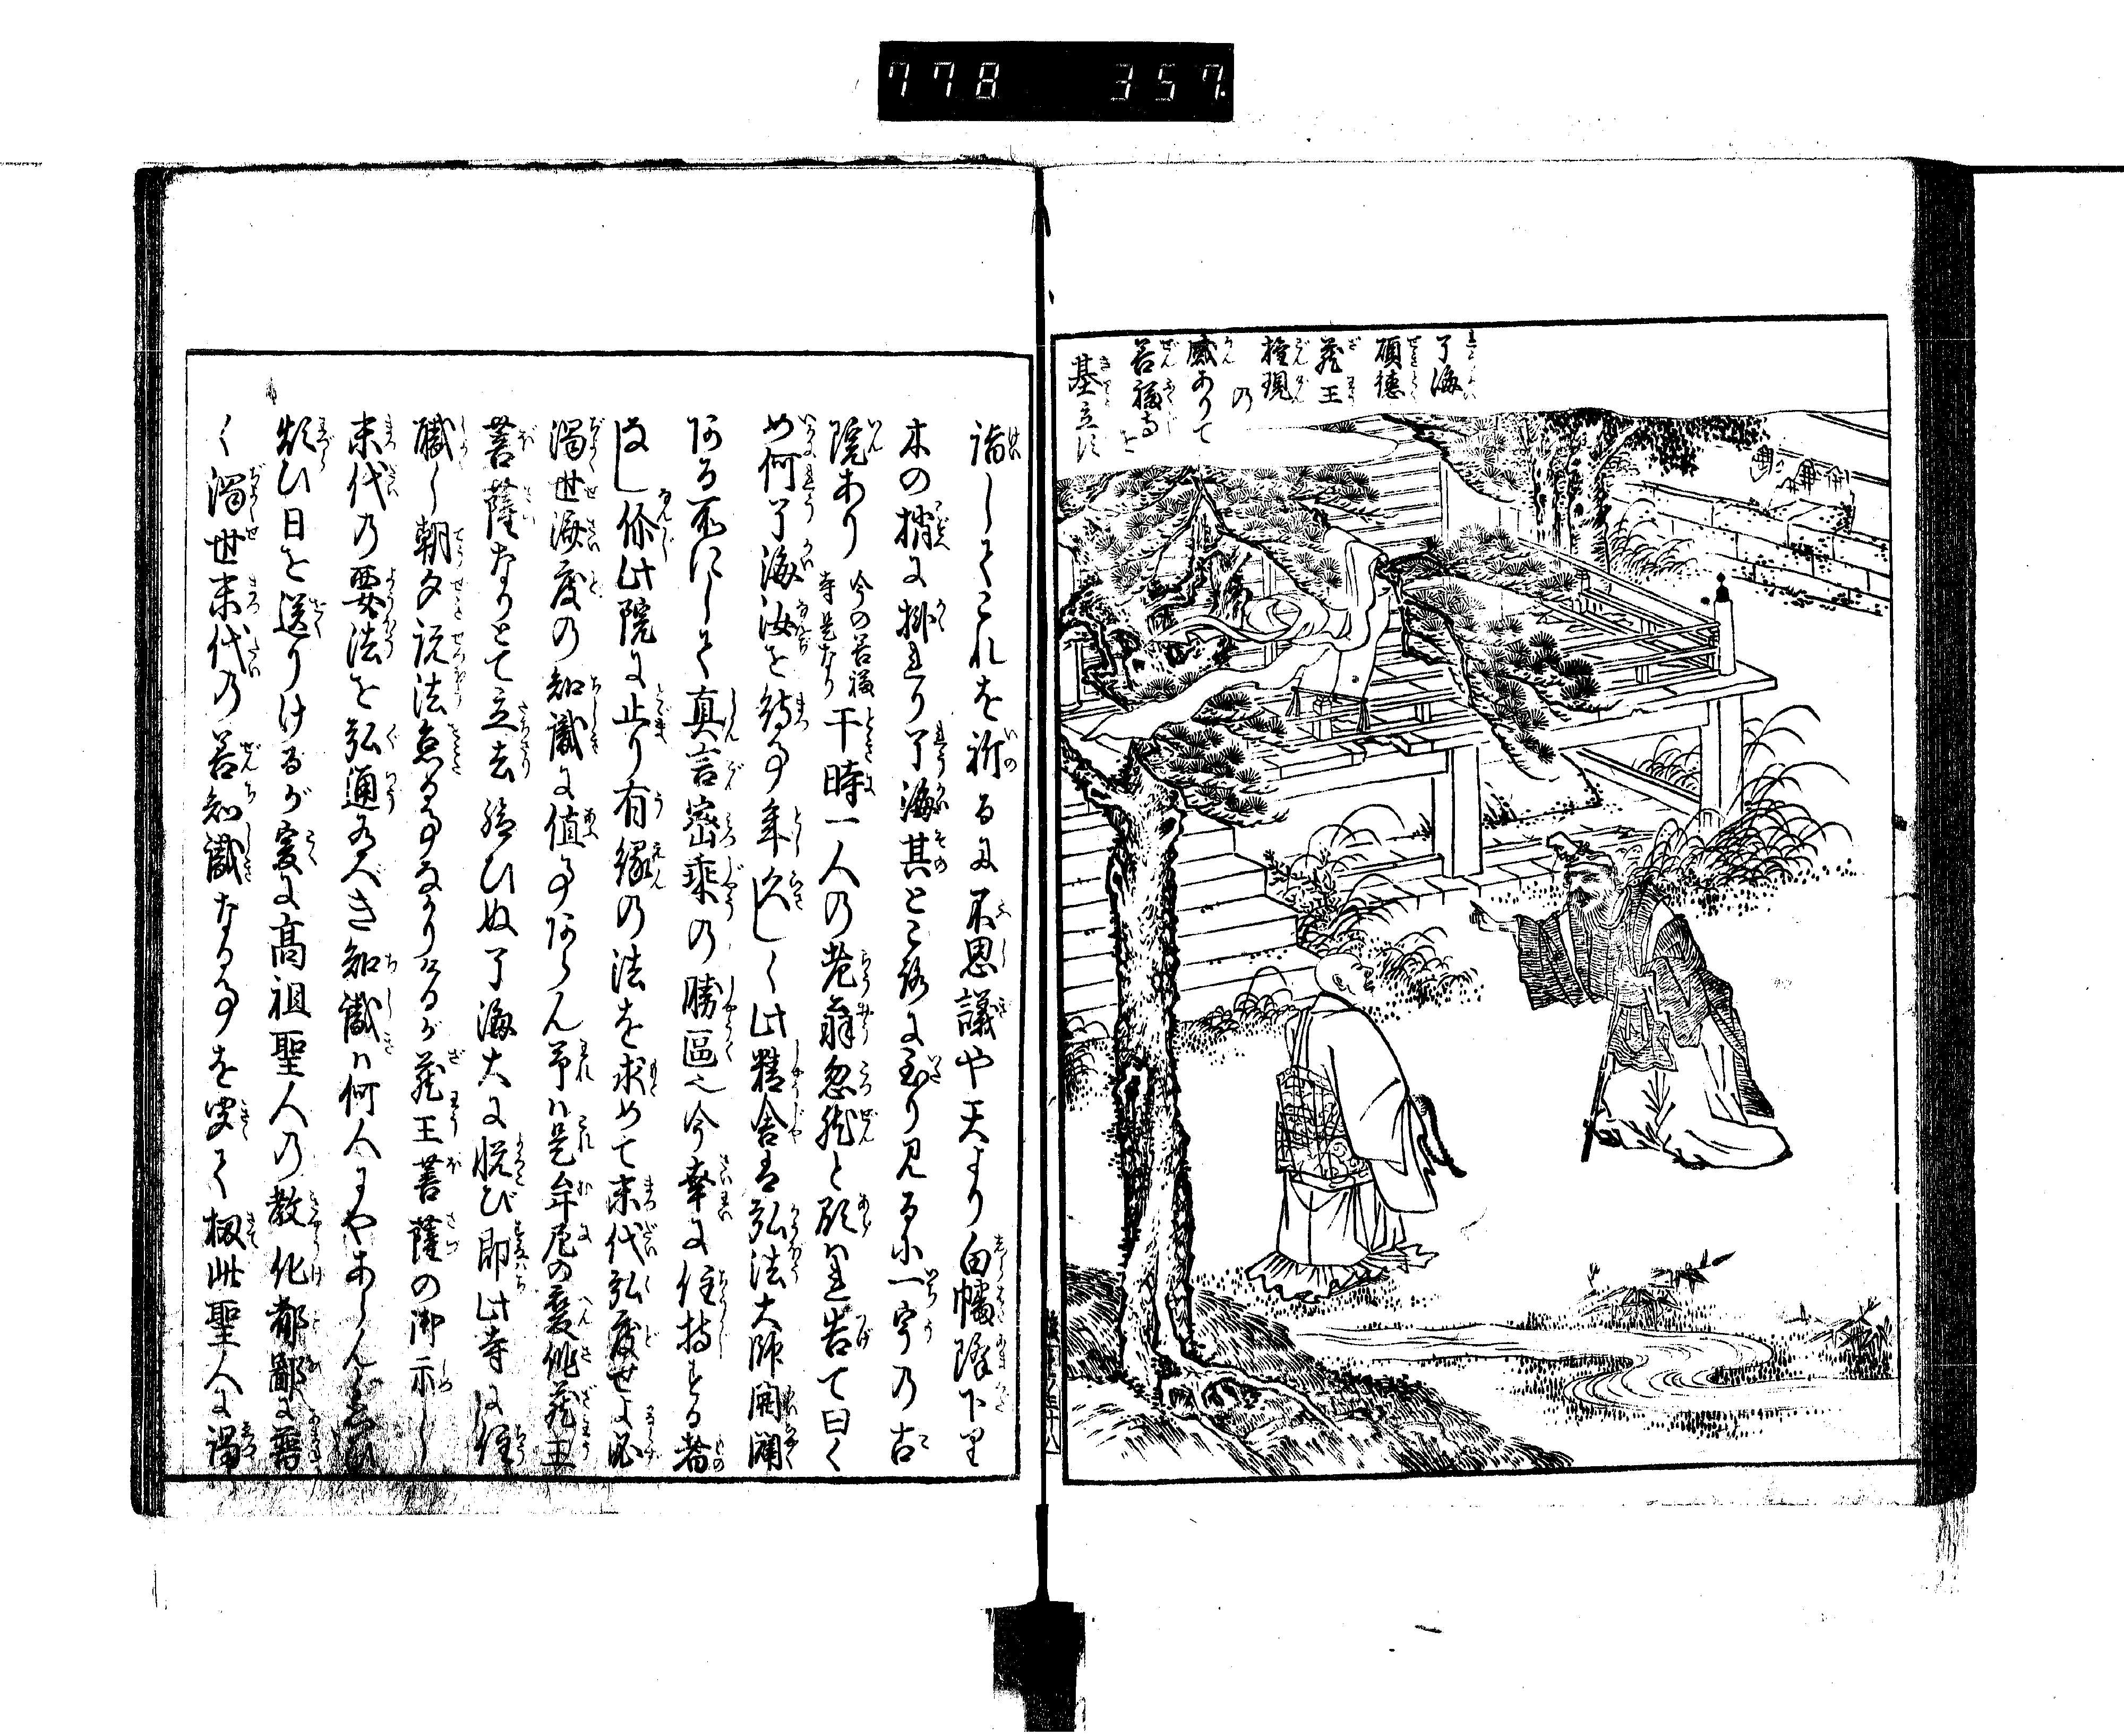 778 357
了海
碩徳
蔵王
権現
の
感ありて
善福寺を
基立す
詣してこれを祈るに不思議や天より白幡降下り
木の梢に掛れり了海其ところに至り見るに一宇の古
院あり今の善福寺是なり干時一人の老翁忽然と顕はれ告て曰く
め何了海汝を待事年久しく此精舎は弘法大師開闢
ある所にして真言密乗の勝區也今幸に住持する者
なし你此院に止り有縁の法を求めて末代弘度せよ必
濁世済度の知識に値事あらん予は是牟尼の変作蔵王
菩薩なりとて立去給ひぬ了海大に悦び即此寺に住
職し朝夕説法怠る事なかりけるが蔵王菩薩の御示し
末代の要法を弘通すべき知識は何人にやあらんと思ひ
煩ひ日を送りけるが爰に高祖聖人の教化都鄙に普
く濁世末代の善知識なる事を聞て扨此聖人に謁